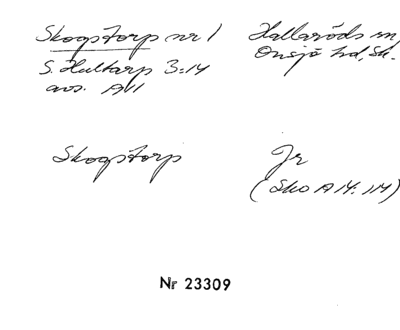 Skogstorp nr 1
Hallaröds sn,
Onsjö hd, Sk.
S. Hultarp 3:14
avs. AVI
Skogstorp
Jr
(Sko A 14: 114)
Nr 23309